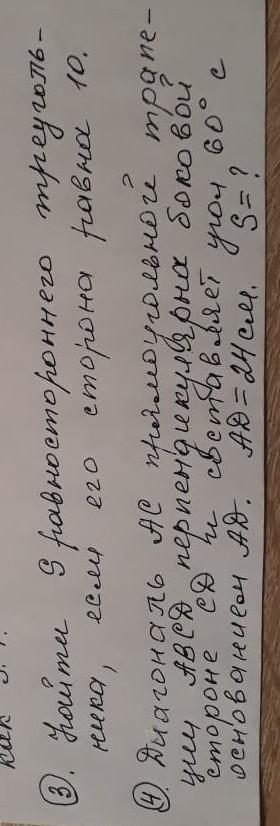 как 3:
③. Найти S равностороннего треуголь-
ника, если его сторона равна 10.
④. Диагональ AC прямоугольной трапе-
ции ABCD перпендикулярна боковой
стороне CD и составляет угол 60° с
основанием AD. AD = 24 см. S = ?